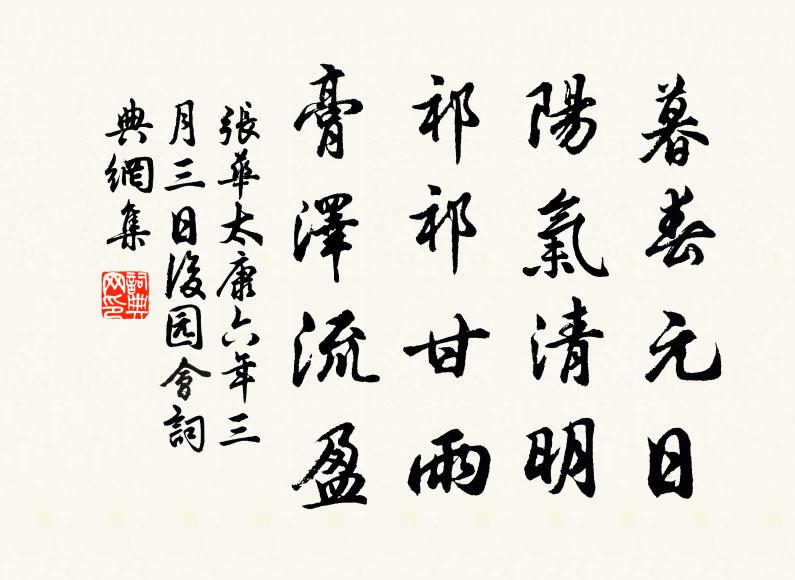 暮春元日
陽氣清明
祁祁甘雨
膏澤流盈
張華太康六年三
月三日後园會詞
典網集
詞典网印